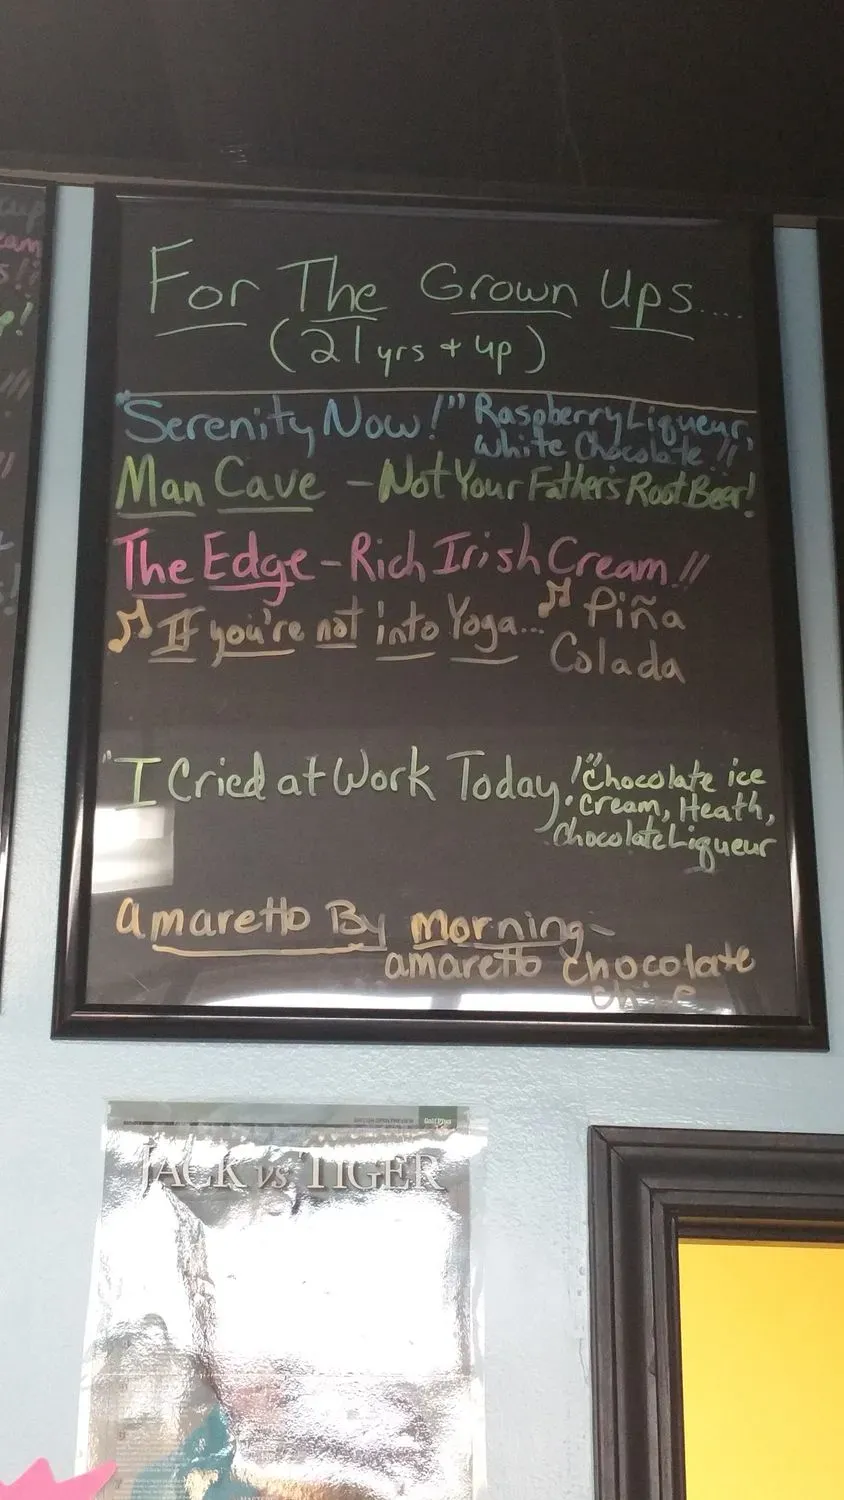 For The Grown Ups....
(21 yrs + up)
"Serenity Now!" Raspberry Liqueur,
White Chocolate!!
Man Cave - Not Your Father's Root Beer!
The Edge - Rich Irish Cream!!
♫ If you're not into Yoga... ♫ Piña
Colada
"I Cried at Work Today!" Chocolate ice
cream, Heath,
Chocolate Liqueur
amaretto By morning-
amaretto chocolate
JACK vs TIGER
cup
eam